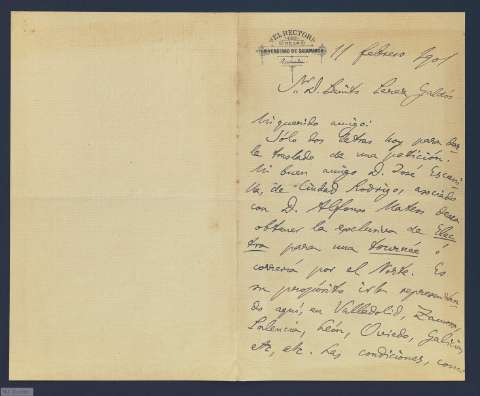 EL RECTOR
DE LA
UNIVERSIDAD DE SALAMANCA
11 febrero 1901
Sr. D. Benito Perez Galdós
Mi querido amigo:
Sólo dos letras hoy para dar
le traslado de una petición.
Mi buen amigo D. José Escani
lla, de Ciudad Rodrigo, asociado
con D. Alfonso Mateos desea
obtener la exclusiva de Elec
tra para una tournée ó
correría por el Norte. Es
su propósito irla represen
do aquí, en Valladolid, Zamora,
Palencia, León, Oviedo, Galicia,
etc, etc. Las condiciones, como